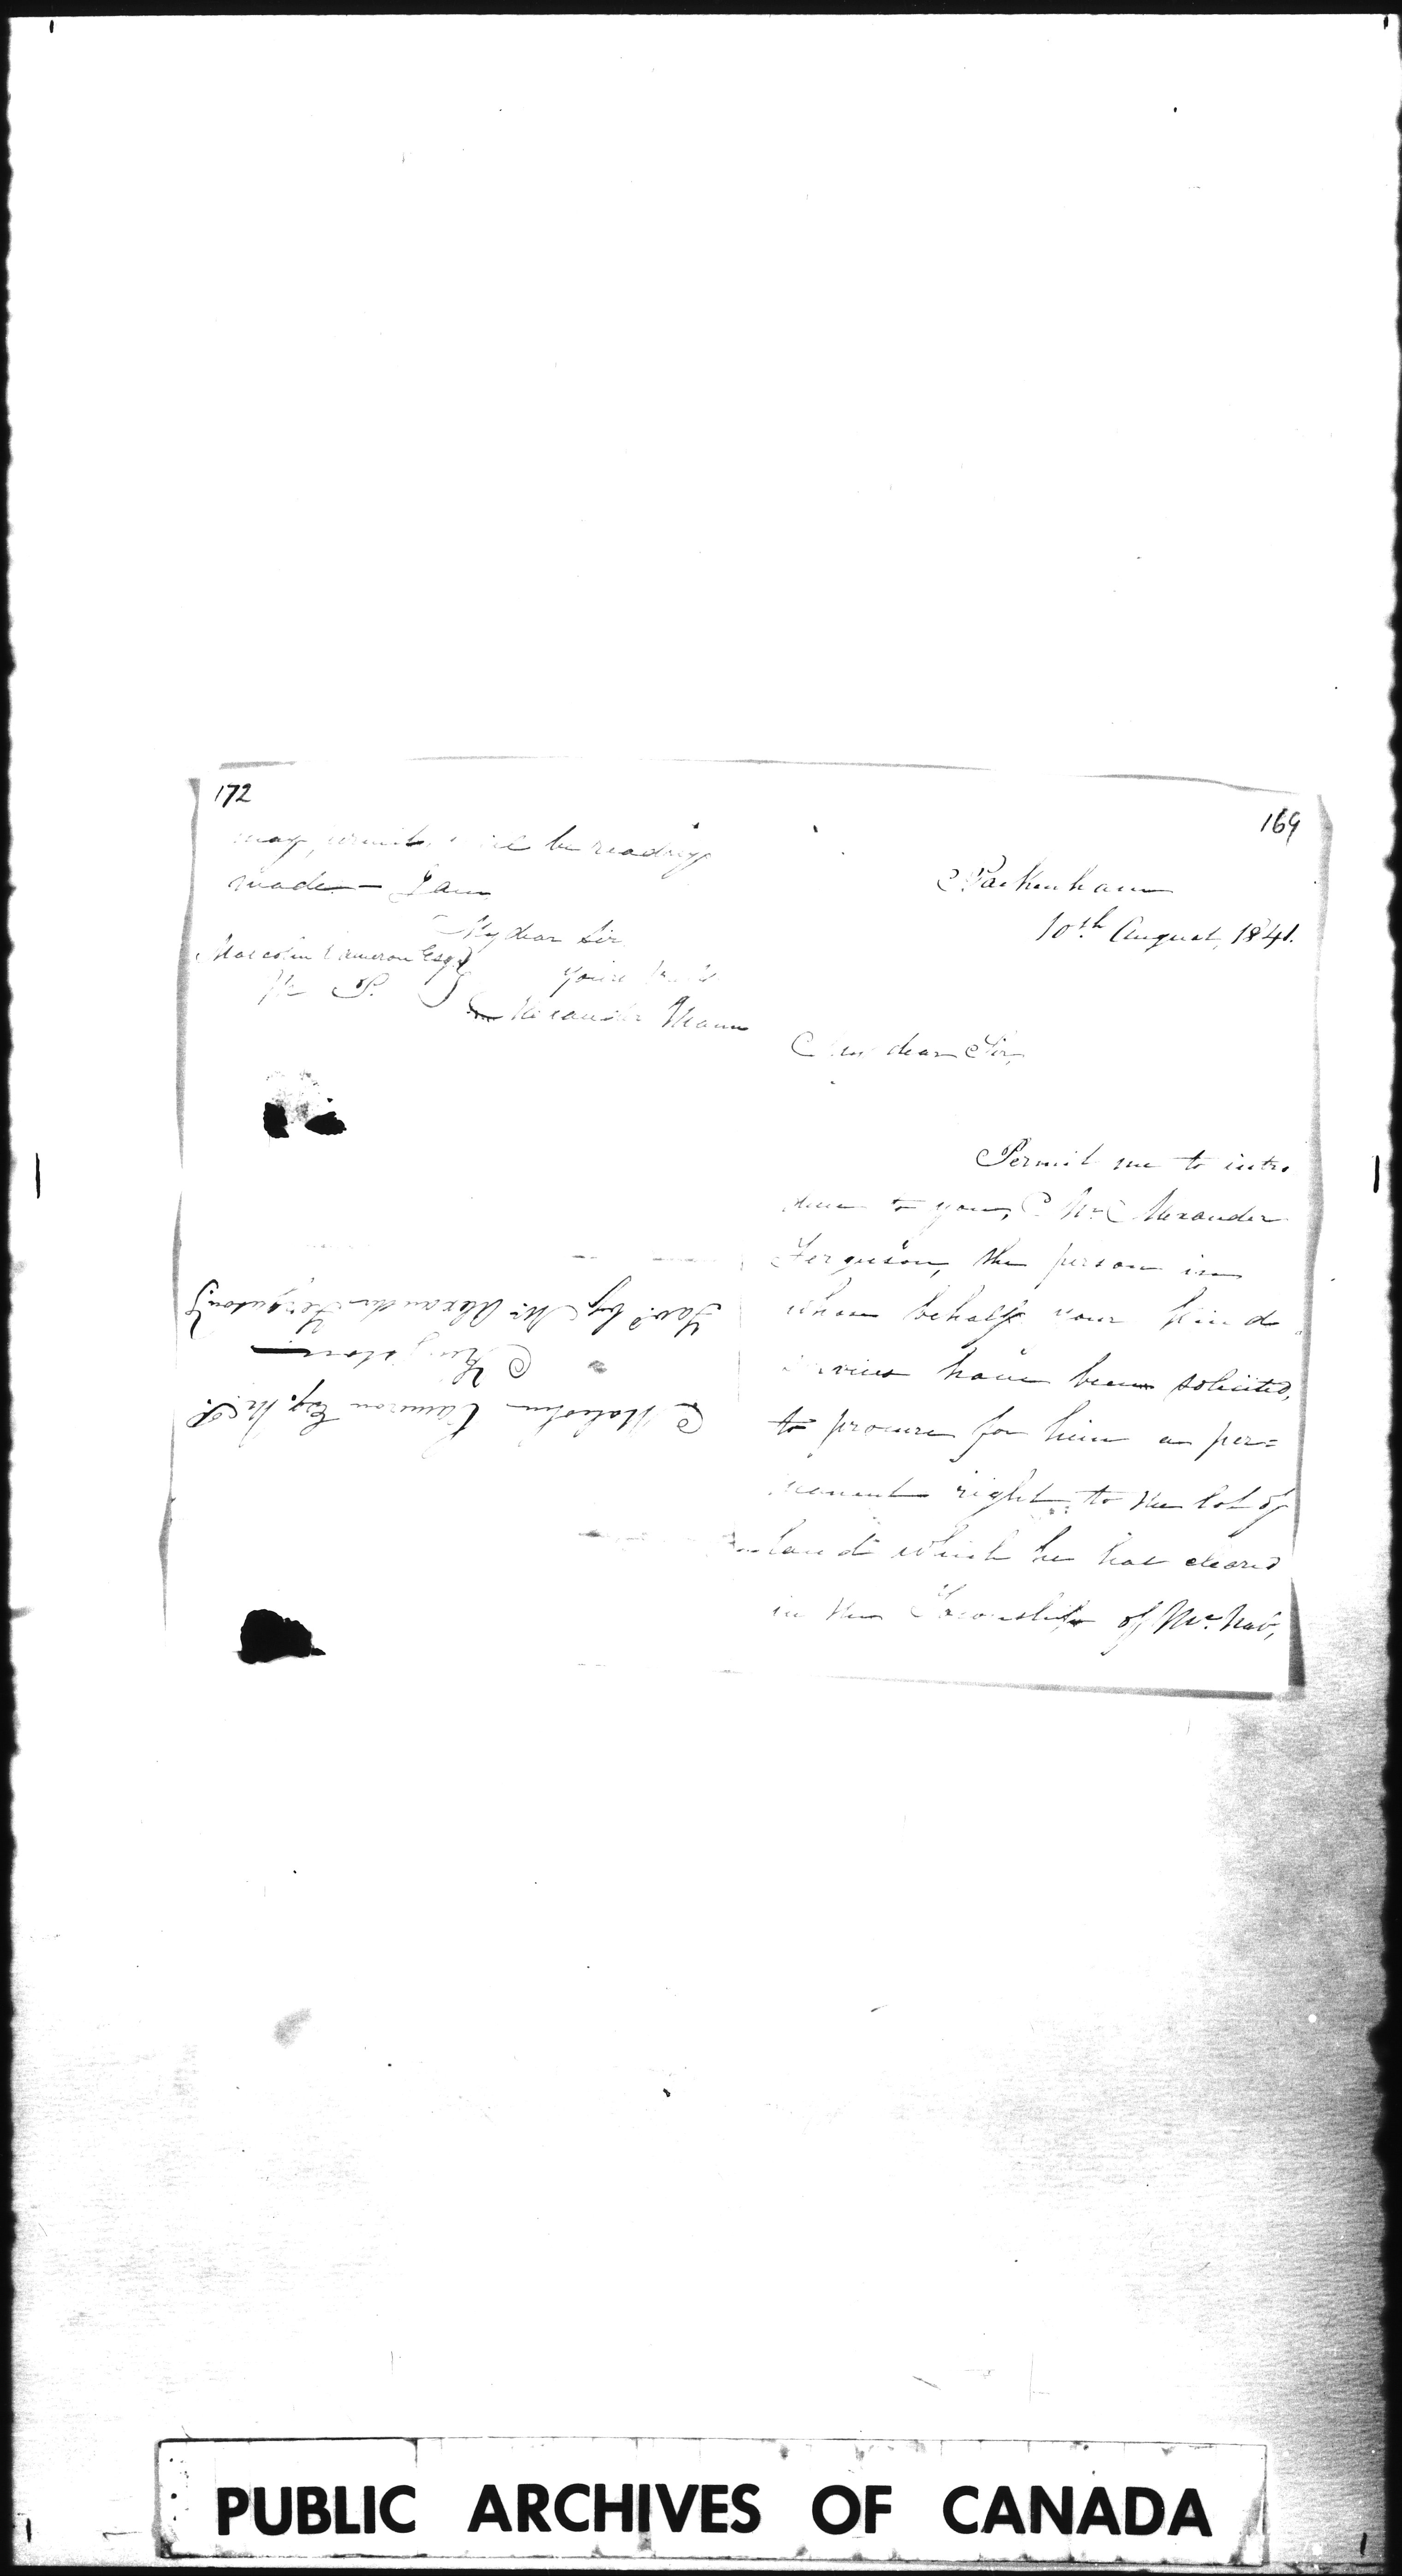 172
may, permit, be readily
made — I am
My dear Sir
Malcolm Cameron Esqr
M P.
yours truly
Alexander Mann
Malcolm Cameron Esq. M.P.
Kingston
Favd by Mr Alexander Ferguson
169
Pakenham
10th August, 1841.
My dear Sir,
Permit me to intro
duce to you, Mr Alexander
Ferguson, the person in
whose behalf your kind
services have been solicited,
to procure for him a per=
manent right to the lot of
land which he has cleared
in the Township of McNab,
PUBLIC ARCHIVES OF CANADA